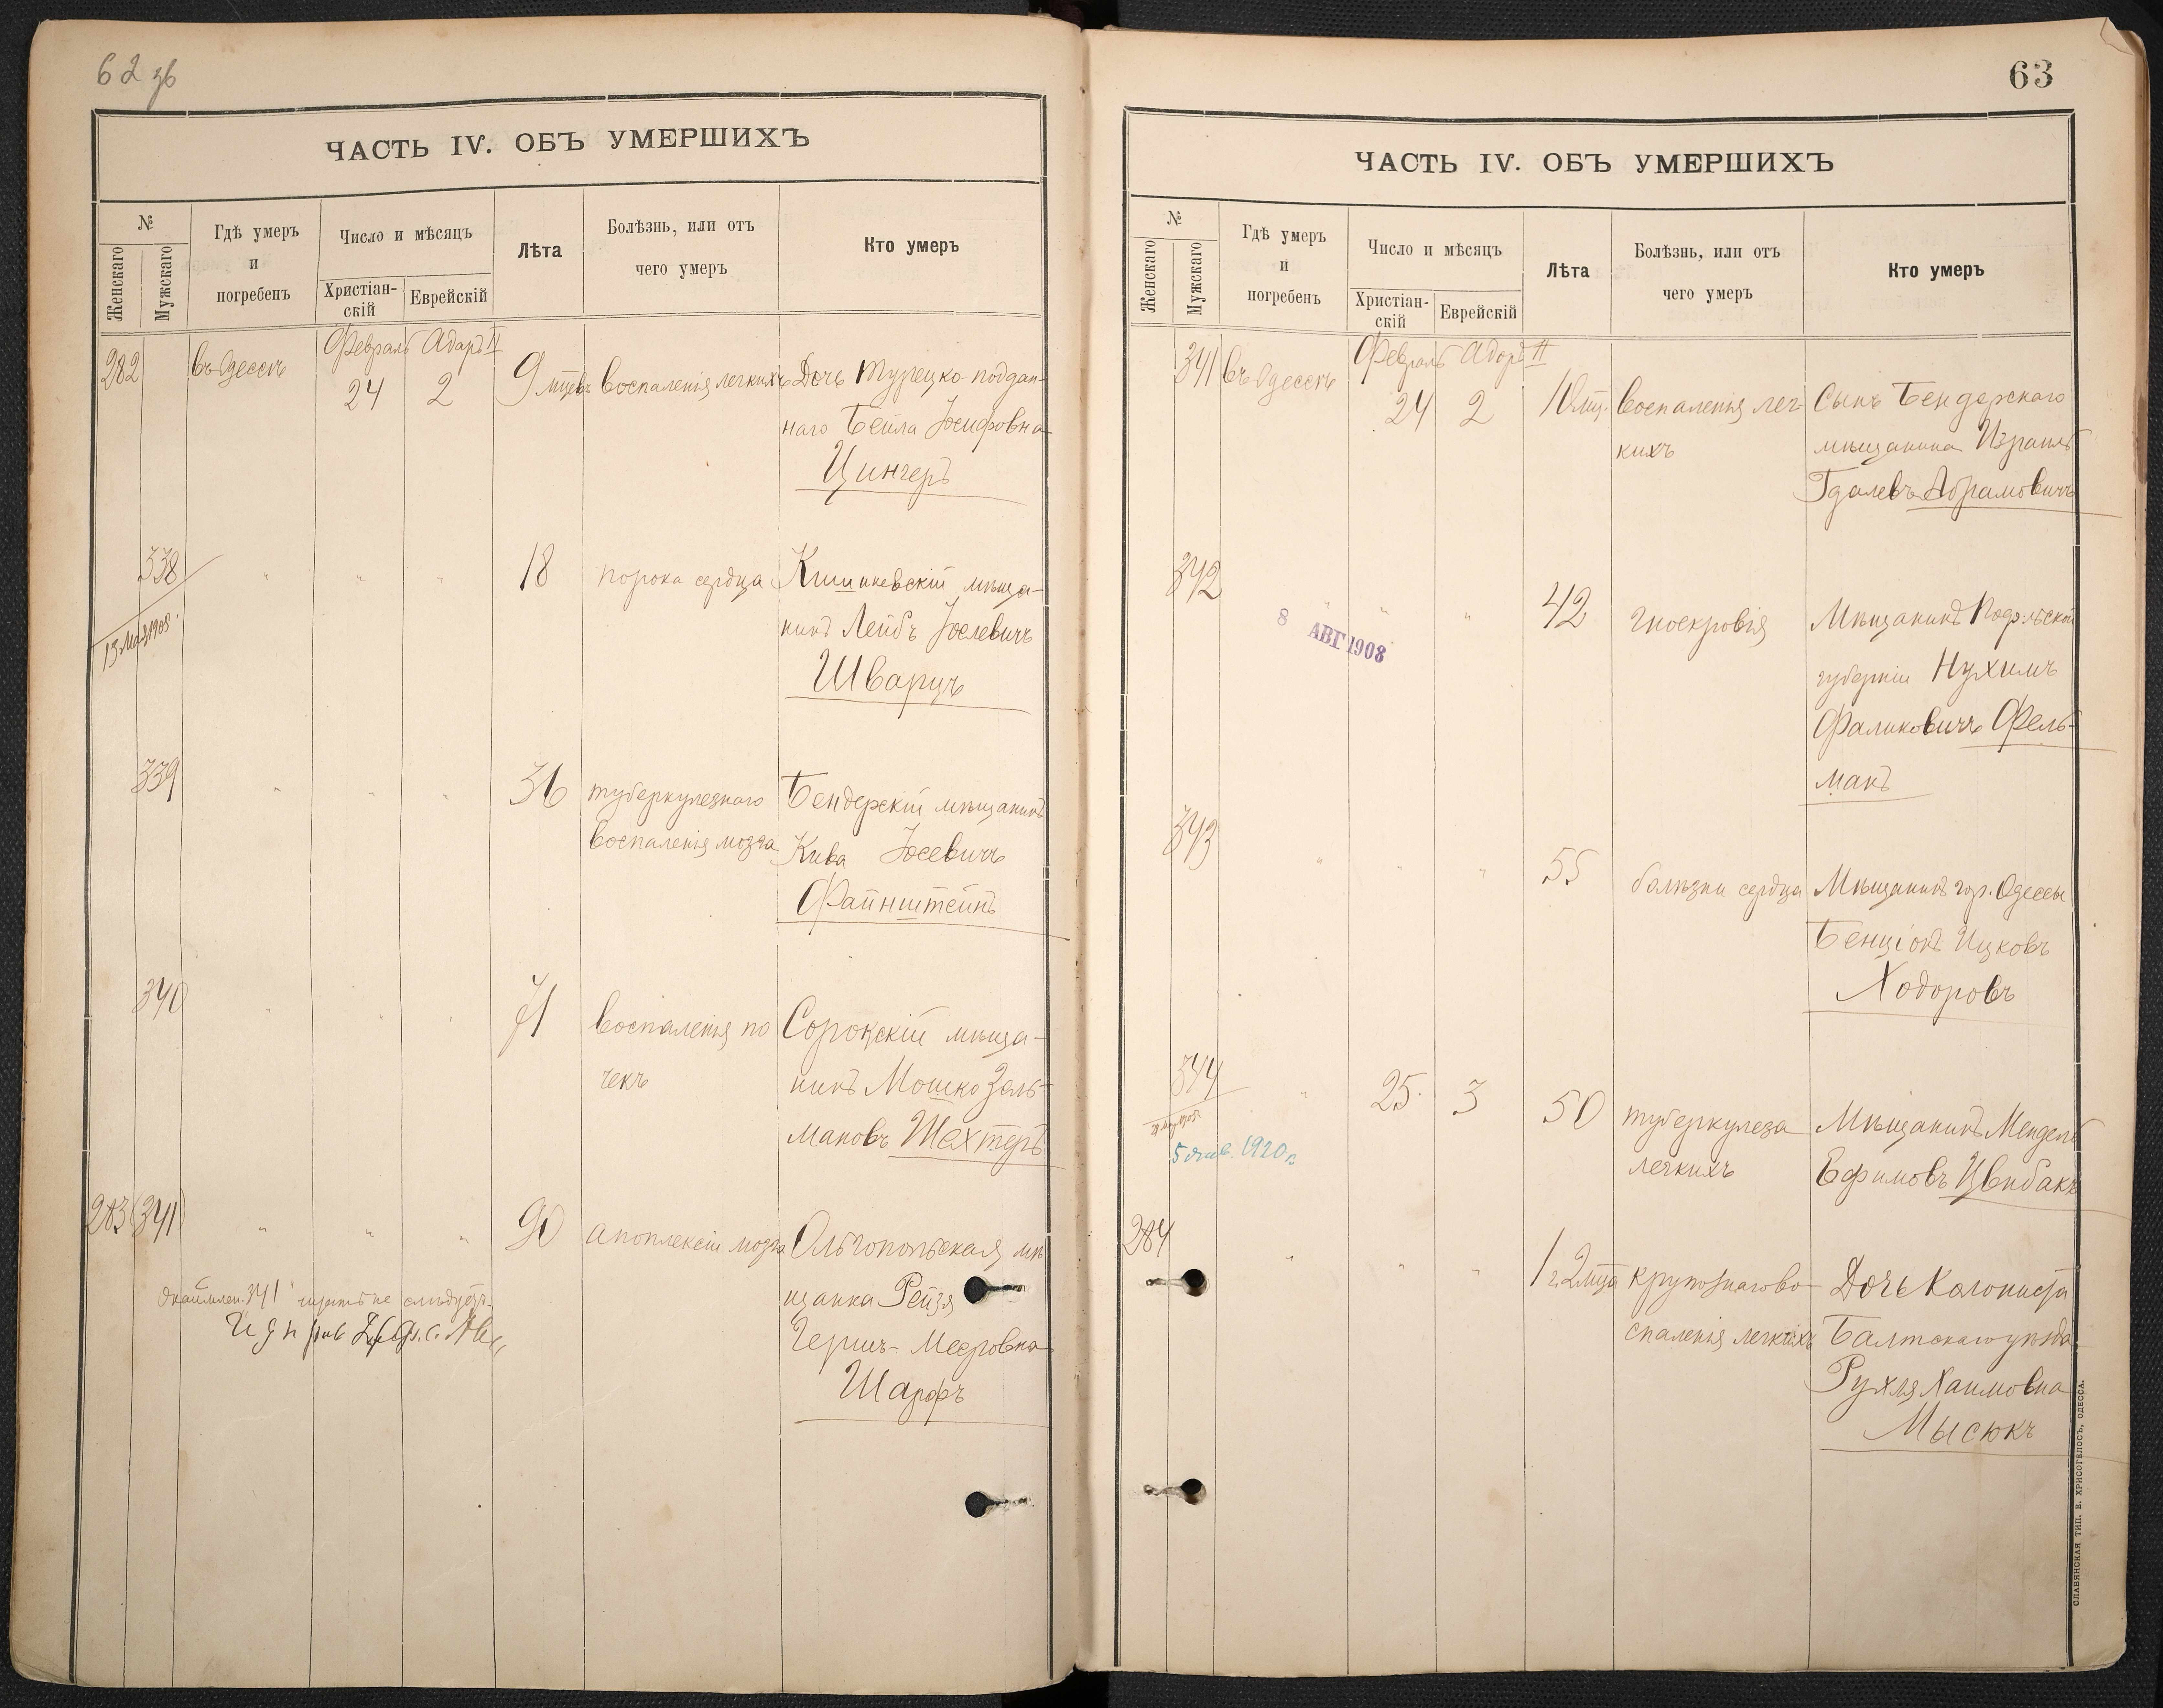 62 зб
ЧАСТЬ IV. ОБЪ УМЕРШИХЪ
№
Женскаго
Мужскаго
Гдѣ умеръ
и
погребенъ
Число и мѣсяцъ
Христіан-
скій
Еврейскій
Лѣта
Болѣзнь, или отъ
чего умеръ
Кто умеръ
Февраль Адаръ II
282 въ Одессѣ 24 2 9 мцевъ воспаленія легкихъ Дочь Турецко-поддан-
наго Бейла Іосифовна
Цингеръ
338 " " " 18 порока сердца Кишиневскій мѣща-
нинъ Лейбъ Іоселевичъ
Шварцъ
13 Мая 1908.
339 " " " 36 туберкулезнаго Бендерскій мѣщанинъ
воспаленія мозга Кива Іосевичъ
Файнштейнъ
340 " " 71 воспаленія по Сорокскій мѣща-
чекъ нинъ Мошко Заль-
мановъ Шехтеръ
283 (341) " " " 90 апоплексіи мозга Ольгопольская мѣ
щанка Рейзя
Гершъ-Мееровна
Шарфъ
341 не слѣдуетъ.
63
ЧАСТЬ IV. ОБЪ УМЕРШИХЪ
№
Женскаго
Мужскаго
Гдѣ умеръ
и
погребенъ
Число и мѣсяцъ
Христіан-
скій
Еврейскій
Лѣта
Болѣзнь, или отъ
чего умеръ
Кто умеръ
Февраль Адаръ II
341 въ Одессѣ 24 2 10 мц. воспаленія лег- Сынъ Бендерскаго
кихъ мѣщанина Израиль
Гдалевъ Абрамовичъ
342 " " " 42 гноекровія Мѣщанинъ Подольской
губерніи Нухимъ
Фаликовичъ Фель-
манъ
8 АВГ 1908
343 " " " 55 болѣзни сердца Мѣщанинъ гор. Одессы
Бенціонъ Ицковъ
Ходоровъ
344 " 25. 3 50 туберкулеза Мѣщанинъ Мендель
легкихъ Ефимовъ Цвибакъ
5 янв. 1920 г.
284 " " " 1 г. 2 мца крупознаго во- Дочь Колониста
спаленія легкихъ Балтскаго уѣзда
Рухля Хаимовна
Мысюкъ
СЛАВЯНСКАЯ ТИП. Е. ХРИСОГЕЛОСЪ, ОДЕССА.